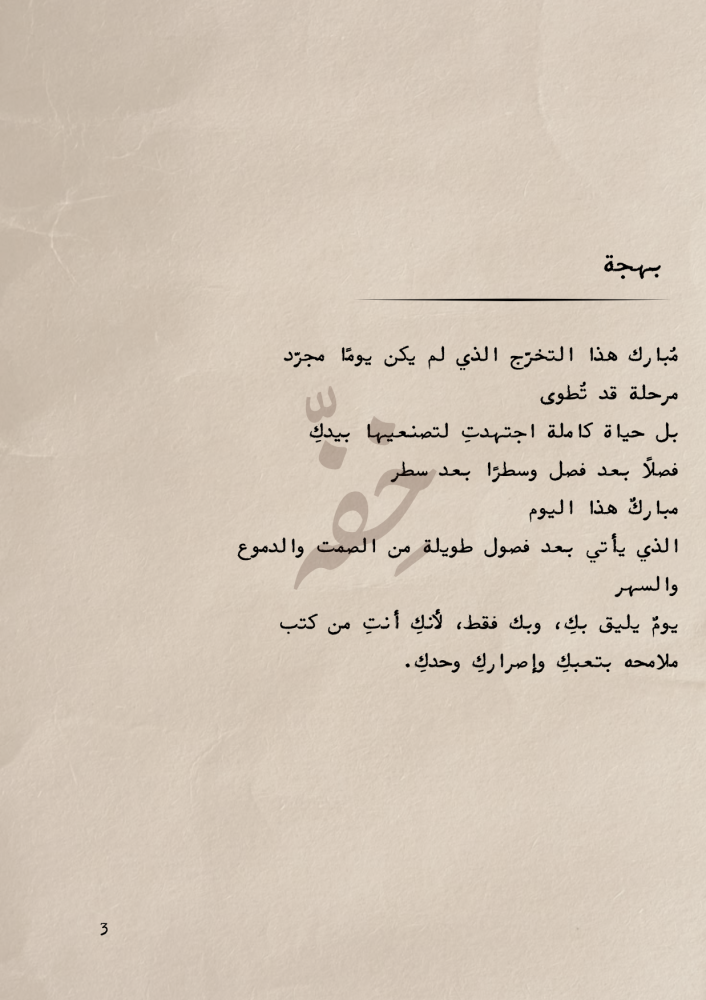 بهجة
مُبارك هذا التخرّج الذي لم يكن يومًا مجرّد
مرحلة قد تُطوى
بل حياة كاملة اجتهدتِ لتصنعيها بيدكِ
فصلًا بعد فصل وسطرًا بعد سطر
مباركٌ هذا اليوم
الذي يأتي بعد فصول طويلة من الصمت والدموع
والسهر
يومٌ يليق بكِ، وبك فقط، لأنكِ أنتِ من كتب
ملامحه بتعبكِ وإصراركِ وحدكِ.
3